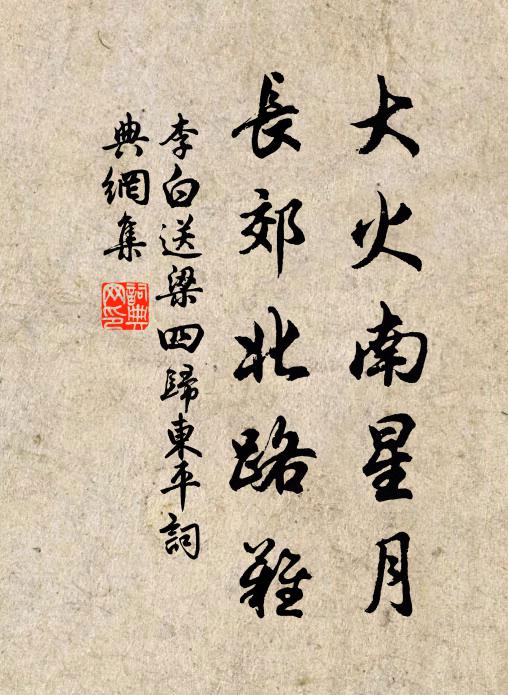 大火南星月
長郊北路難
李白送梁四歸東平詞
典網集
詞典網印